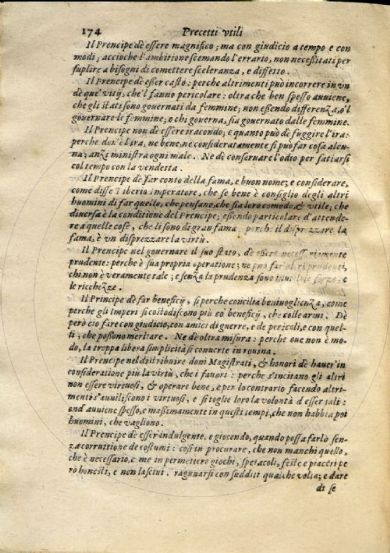 174 Precetti vtili
Il Prencipe dè essere magnifico; ma con giudicio a tempo e con
modi, accioche l'ambitione scemando l'errario, non necessitati per
suplire a bisogni di comettere sceleranza, e diffetto.
Il Prencipe dè esser casto: perche altrimenti può incorrere in vn
dè que' vitij, che'l fanno pericolare: oltra che ben spesso auuiene,
che gli stati sono gouernati da femmine; non essendo differenza, o'l
gouernare le femmine, o chi gouerna, sia gouernato dalle femmine.
Il Prencipe non dè essere iracondo; e quanto può dè fuggire l'ira:
perche dou'è l'ira, ne bene, ne consideratamente si può far cosa alcu-
na; anzi ministra ogni male. Ne dè conseruare l'odio per satiarsi
col tempo con la vendetta.
Il Prencipe dè far conto della fama, e buon nome; e considerare,
come disse Tiberio Imperatore, che se bene è consiglio degli altri
huomini di far quello, che pensano, che sia loro comodo, & vtile; che
diuersa è la conditione del Prencipe; essendo particolare d'attende-
re a quelle cose, che li sono da gran fama, perche il disprezzare la
fama, è vn disprezzare la virtù.
Il Prencipe nel gouernare il suo stato, dè essere necessariamente
prudente: perche è sua propria operatione; ne può far
chi non è veramente tale; e senza la prudenza sono inutili le forze, e
le ricchezze.
Il Principe dè far beneficij, si perche concilia beniuoglienza, come
perche gli Imperi si custodiscono più co' beneficij, che coll'armi. De
però ciò fare con giudicio, con amici di guerre, e de pericoli, e con quel-
li, che possono meritare. Ne dè oltra misura: perche oue non è mo-
do, la troppa libera simplicità si conuerte in rouina.
Il Prencipe nel distribuire doni Magistrati, & honori dè hauer in
consideratione più la virtù, che i fauori: perche s'incitano gli altri
non essere virtuosi, & operare bene, e per lo contrario facendo altri-
menti s'auuiliscono i virtuosi, e si toglie loro la volontà d'esser tali:
ond'auuiene spesso, e massimamente in questi tempi, che non habbia poi
huomini, che vagliono.
Il Prencipe dè esser indulgente, e giocondo, quando possa farlo sen-
za corruttione de costumi: cosi in procurare, che non manchi quello,
che è necessario, come in permettere giochi, spetacoli, feste e piaceri pe
rò honesti, e non lasciui, ragunarsi con sudditi qualche volta; e dare
di se